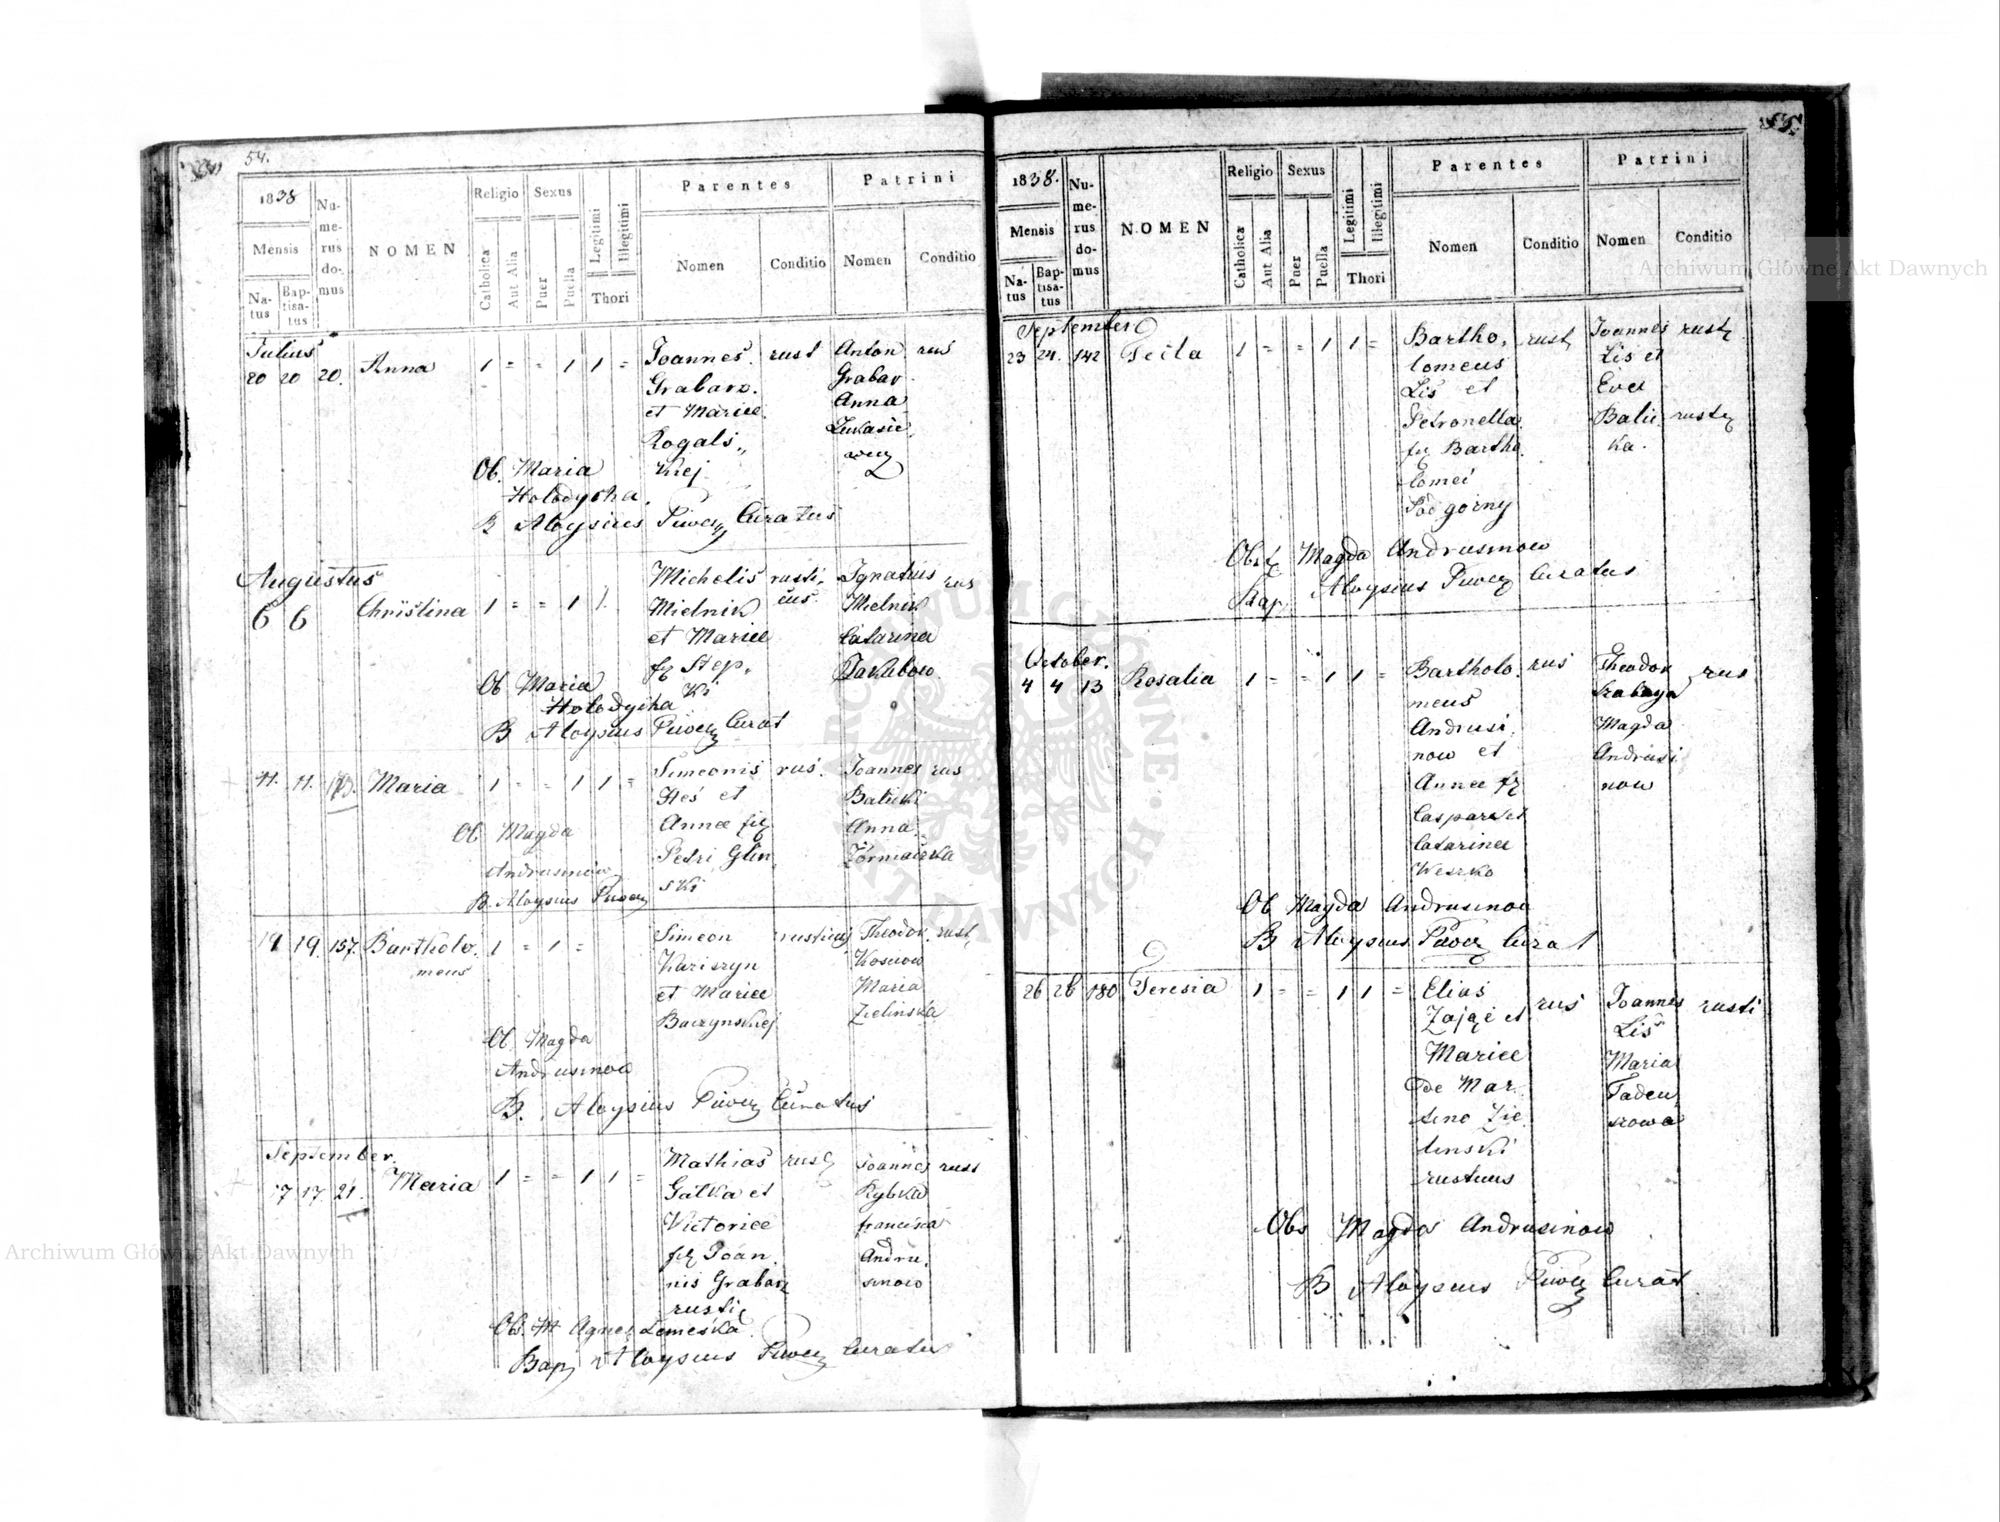 54.
1838
Numerus domus
NOMEN
Religio
Sexus
Legitimi
Illegitimi
Parentes
Patrini
Mensis
Catholica
Aut Alia
Puer
Puella
Thori
Nomen
Conditio
Nomen
Conditio
Natus
Baptisatus
Julius
20 20 20. Anna 1 = = 1 1 = Joannes rust Anton rus
Grabarz. Grabar
et Mariae Anna
Rogals,, Łukasie
Ob. Maria kiej wcz
Holodycha.
B Aloysius Piwcz Curatus
Augustus
6 6 Christina 1 = = 1 1. Michelis rusti- Ignatius rus
Mielnik cus. Mielnik
et Mariae Catarina
Step. Jakubow
Ob Maria ki
Holodycha
B Aloysius Piwcz Curat
11. 11. Maria 1 = = 1 1 = Simeonis rus. Joannes rus
Heś et Balicki
Annae fil Anna
Ob Magda Petri Glin
Andrusinow ski
B. Aloysius Piwcz
19 19. 157. Bartholo. 1 = 1 = Simeon rusticus Theodor. rust,
meus Kariszyn Kosciow
et Mariae Maria
Baczynskiej Zielinska
Ob Magda
Andrusinow
B. Aloysius Piwcz Curatus
September.
17 17 21. Maria 1 = = 1 1 = Mathias rust Joannes rust
Galka et Rybka
Victoriae francisca
Joan Andru,
nis Grabarz sinow
rusti
Ob. M Agnes Lemeska
Bap Aloysius Piwcz Curatus
55.
1838.
Numerus domus
NOMEN
Religio
Sexus
Legitimi
Illegitimi
Parentes
Patrini
Mensis
Catholica
Aut Alia
Puer
Puella
Thori
Nomen
Conditio
Nomen
Conditio
Natus
Baptisatus
September
23 24. 142 Tecla 1 = = 1 1 = Bartho, rust Joannes rust
lomeus Lis et
Lis et Eva
Petronella Balic rust
Bartho ka.
lomei
Podgorny
Obst Magda Andrusinow
Bap Aloysius Piwcz Curatus
October.
4 4 13 Rosalia 1 = = 1 1 = Bartholo. rus Theodor rus
meus
Andrusi, Magda
now et Andrusi
Annae now
Caspari et
Catarinae
Weszko
Ob Magda Andrusinow
B Aloysius Piwcz Curat
26 26 180 Teresia 1 = = 1 1 = Elias rus Joannes rusti
Zając et Lis
Mariae Maria
de Mar Tadeu
tino Zie szowa
linski
rusticus
Obs Magda Andrusinow
B Aloysius Piwcz Curat
Archiwum Główne Akt Dawnych
Archiwum Główne Akt Dawnych
ARCHIWUM GŁÓWNE AKT DAWNYCH